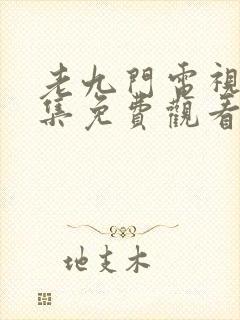 老九門電視
集免費觀看
地支木